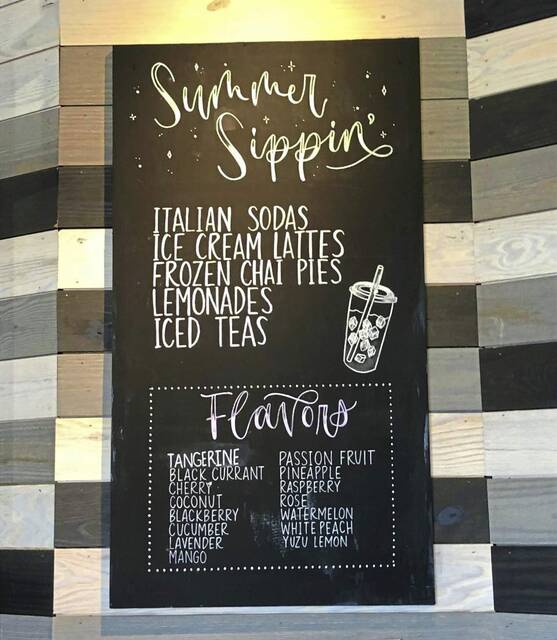 Summer
Sippin'
ITALIAN SODAS
ICE CREAM LATTES
FROZEN CHAI PIES
LEMONADES
ICED TEAS
Flavors
TANGERINE
BLACK CURRANT
CHERRY
COCONUT
BLACKBERRY
CUCUMBER
LAVENDER
MANGO
PASSION FRUIT
PINEAPPLE
RASPBERRY
ROSE
WATERMELON
WHITE PEACH
YUZU LEMON